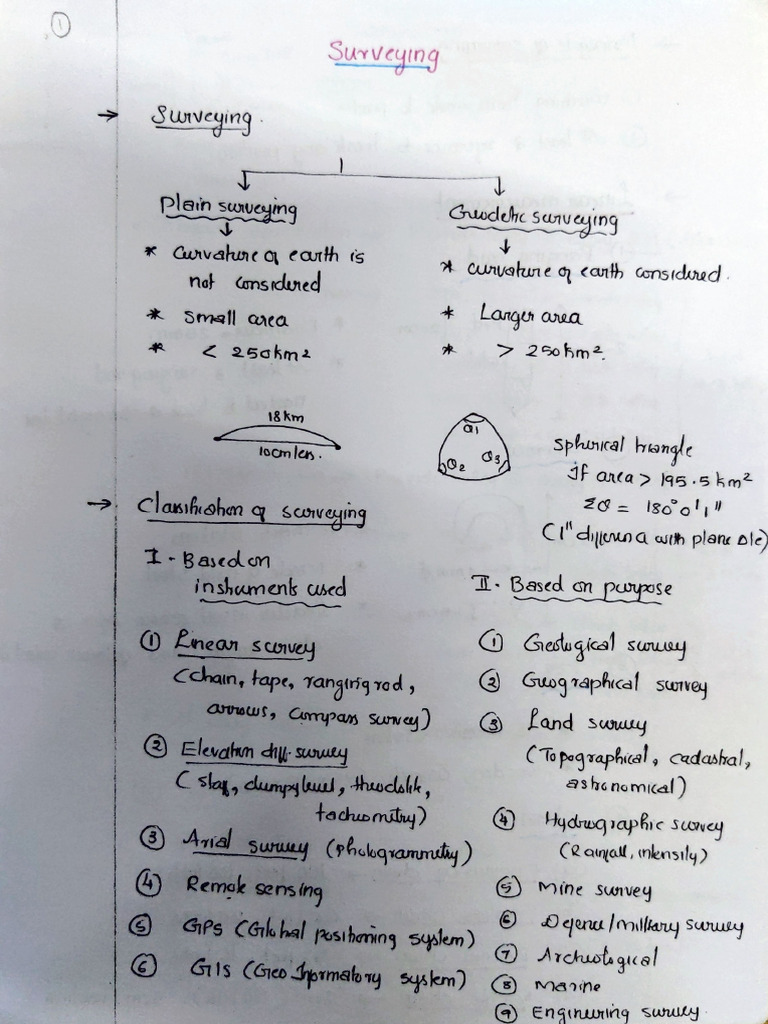 ①
Surveying
→ Surveying.
Plain surveying
* Curvature of earth is
not considered
* Small area
* < 250km²
Geodetic surveying
* curvature of earth considered.
* Larger area
* > 250km².
18km
10cm less.
θ1
θ2 θ3
Spherical triangle
If area > 195.5 km²
Σθ = 180°0'1"
(1" difference with plane Δle)
→ Classification of surveying
I - Based on
instruments used
① Linear survey
(chain, tape, ranging rod,
arrows, compass survey)
② Elevation diff. survey
(staff, dumpy level, theodolite,
tacheometry)
③ Arial survey (photogrammetry)
④ Remote sensing
⑤ GPS (Global positioning system)
⑥ GIS (Geo Informatory system)
II - Based on purpose
① Geological survey
② Geographical survey
③ Land survey
(Topographical, cadastral,
astronomical)
④ Hydrographic survey
(Rainfall, intensity)
⑤ Mine survey
⑥ Defence/military survey
⑦ Archeological
⑧ Marine
⑨ Engineering survey.